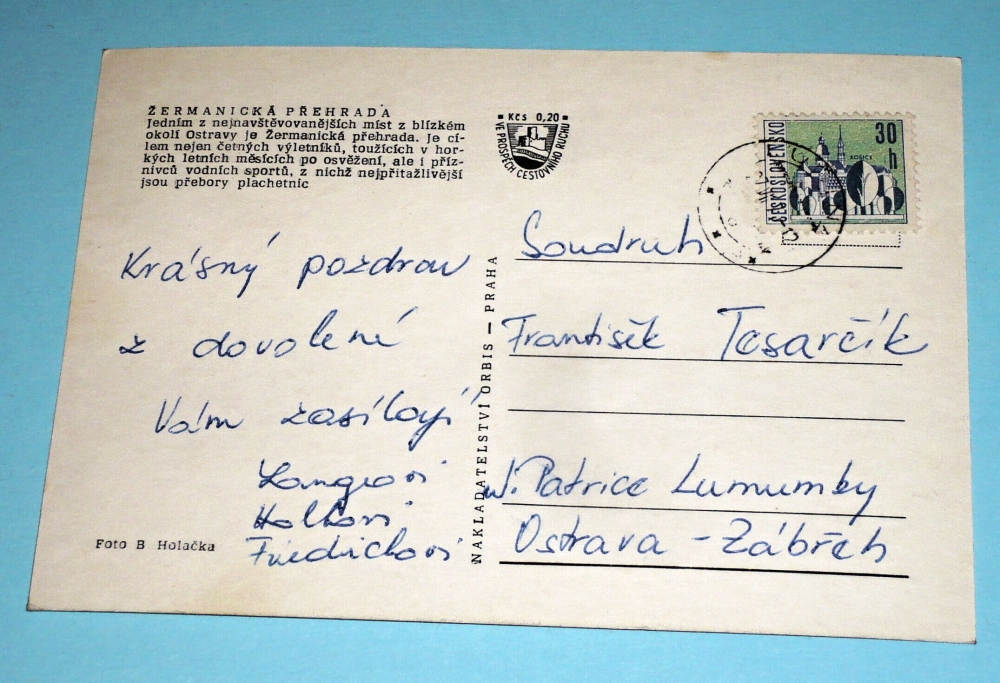 ŽERMANICKÁ PŘEHRADA
Jedním z nejnavštěvovanějších míst z blízkém
okolí Ostravy je Žermanická přehrada. Je cí-
lem nejen četných výletníků, toužících v hor-
kých letních měsících po osvěžení, ale i příz-
nivců vodních sportů, z nichž nejpřitažlivější
jsou přebory plachetnic
Krásný pozdrav
z dovolené
Vám zasílají
Langrovi
Holkovi
Friedrichovi
Foto B Holačka
NAKLADATELSTVÍ ORBIS — PRAHA
Kčs 0,20
VE PROSPĚCH CESTOVNÍHO RUCHU
ČESKOSLOVENSKO
30 h
KOŠICE
Soudruh
František Tesarčík
ul. Patrice Lumumby
Ostrava - Zábřeh